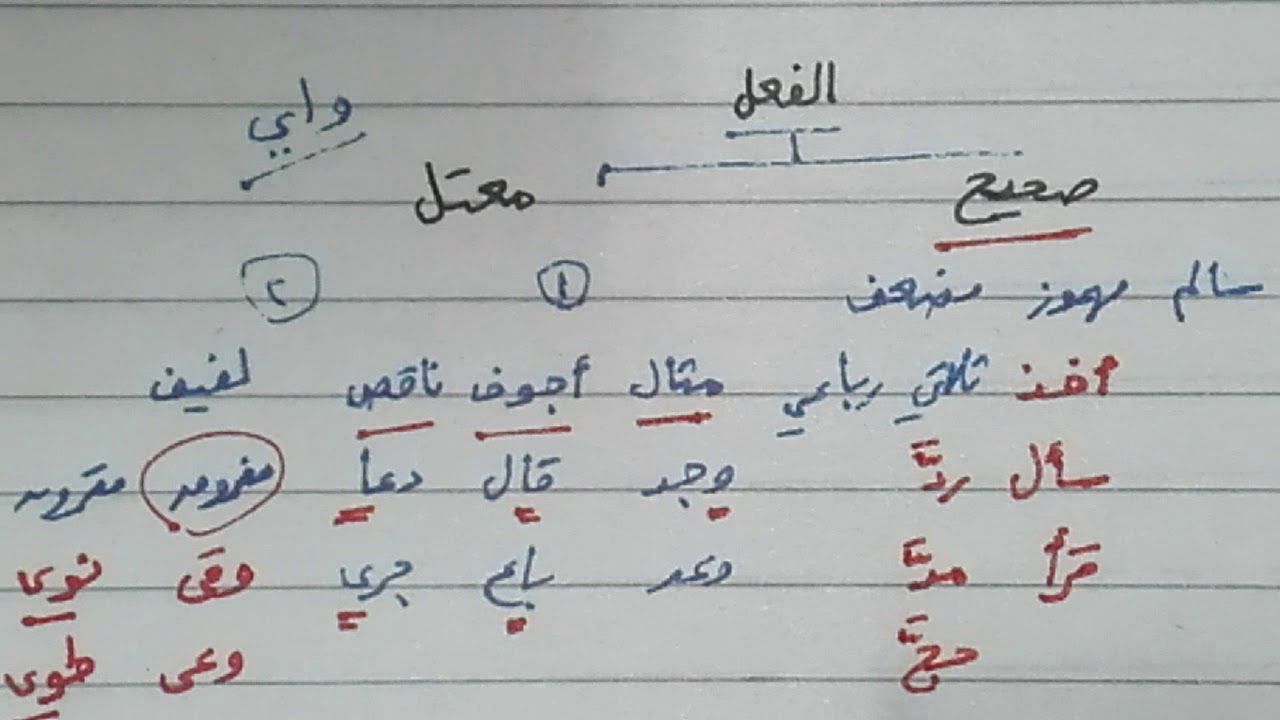 الفعل واي
صحيح معتل
سالم مهموز مضعف ١ ٢
أخذ ثلاثي رباعي مثال أجوف ناقص لفيف
سأل ردَّ وجد قال دعا مفروق مقرون
قرأ مدَّ وعد باع جرى وقى نوى
حجَّ وعى طوى